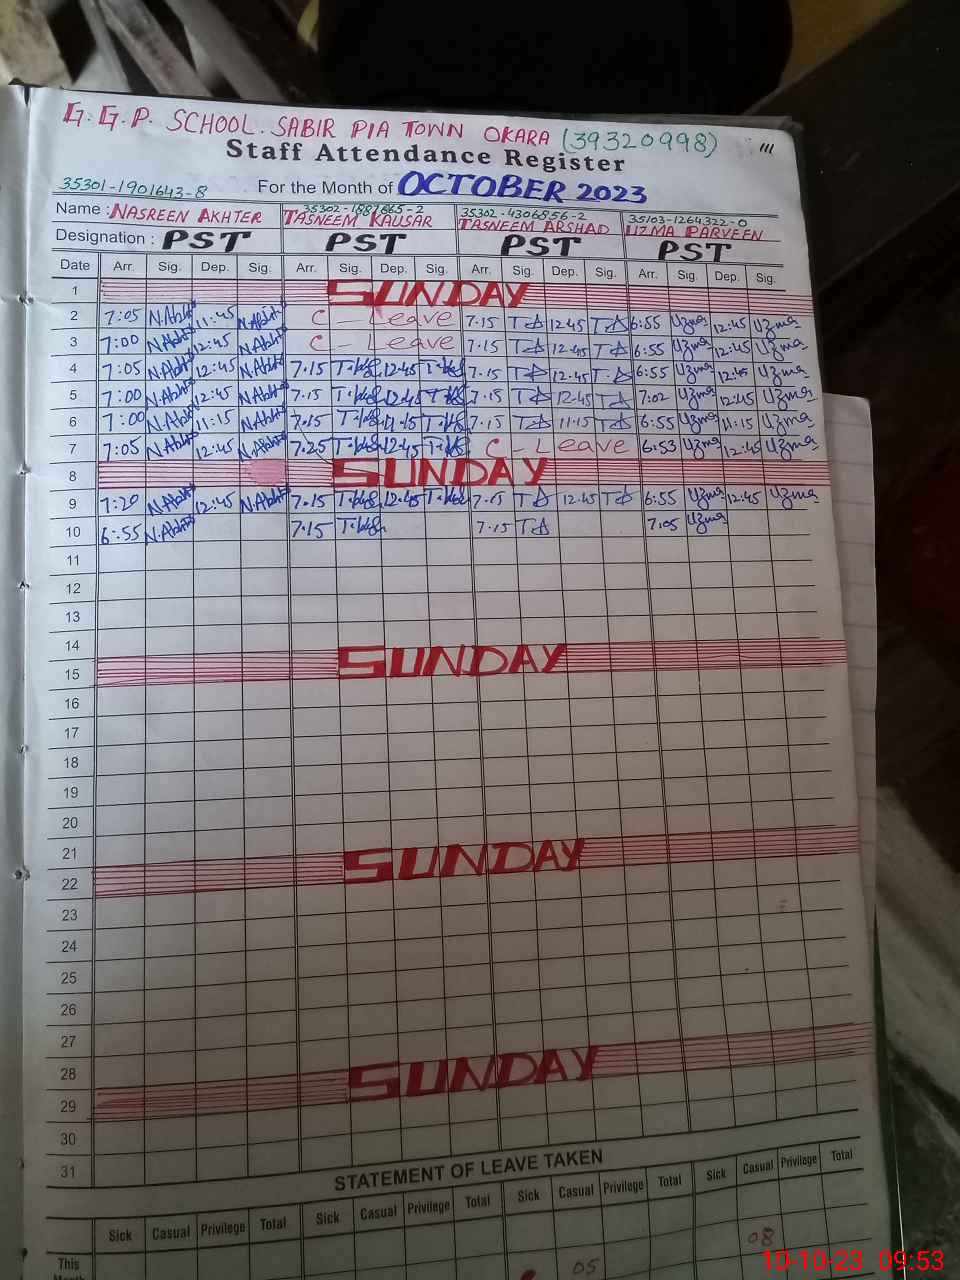 G. G. P. SCHOOL. SABIR PIA TOWN OKARA (39320998)
Staff Attendance Register
35301-1901643-8 For the Month of OCTOBER 2023
35302-1887865-2 35302-4306856-2 35103-1264322-0
Name : NASREEN AKHTER TASNEEM KAUSAR TASNEEM ARSHAD UZMA PARVEEN
Designation : PST PST PST PST
Date Arr. Sig. Dep. Sig. Arr. Sig. Dep. Sig. Arr. Sig. Dep. Sig. Arr. Sig. Dep. Sig.
1 SUNDAY
2 7:05 N.Akht 11:45 N.Akht C - Leave 7.15 TA 12.45 TA 6:55 Uzma 12:45 Uzma
3 7:00 N.Akht 12:45 N.Akht C - Leave 7.15 TA 12.45 TA 6:55 Uzma 12:45 Uzma
4 7:05 N.Akht 12:45 N.Akht 7.15 12.45 7.15 TA 12.45 T.A 6:55 Uzma 12:45 Uzma
5 7:00 N.Akht 12:45 N.Akht 7.15 12.45 7.15 TA 12.45 TA 7:02 Uzma 12:45 Uzma
6 7:00 N.Akht 11:15 N.Akht 7.15 11.15 7.15 TA 11.15 TA 6:55 Uzma 11:15 Uzma
7 7:05 N.Akht 12:45 N.Akht 7.25 12.45 C - Leave 6:53 Uzma 12:45 Uzma
8 SUNDAY
9 7:20 N.Akht 12:45 N.Akht 7.15 12.45 7.15 TA 12.45 TA 6:55 Uzma 12:45 Uzma
10 6:55 N.Akht 7.15 7.15 TA 7.05 Uzma
11
12
13
14
15 SUNDAY
16
17
18
19
20
21
22 SUNDAY
23
24
25
26
27
28
29 SUNDAY
30
31
STATEMENT OF LEAVE TAKEN
Sick Casual Privilege Total Sick Casual Privilege Total Sick Casual Privilege Total Sick Casual Privilege Total
This 05 08
Month
10-10-23 09:53